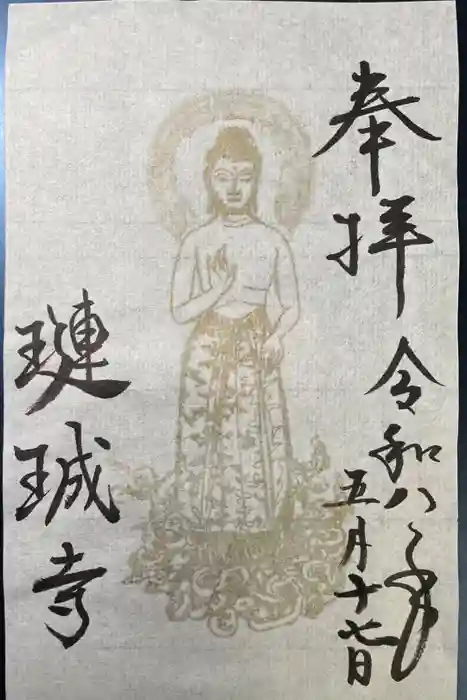 奉拝
令和八年
五月十七日
璉珹寺